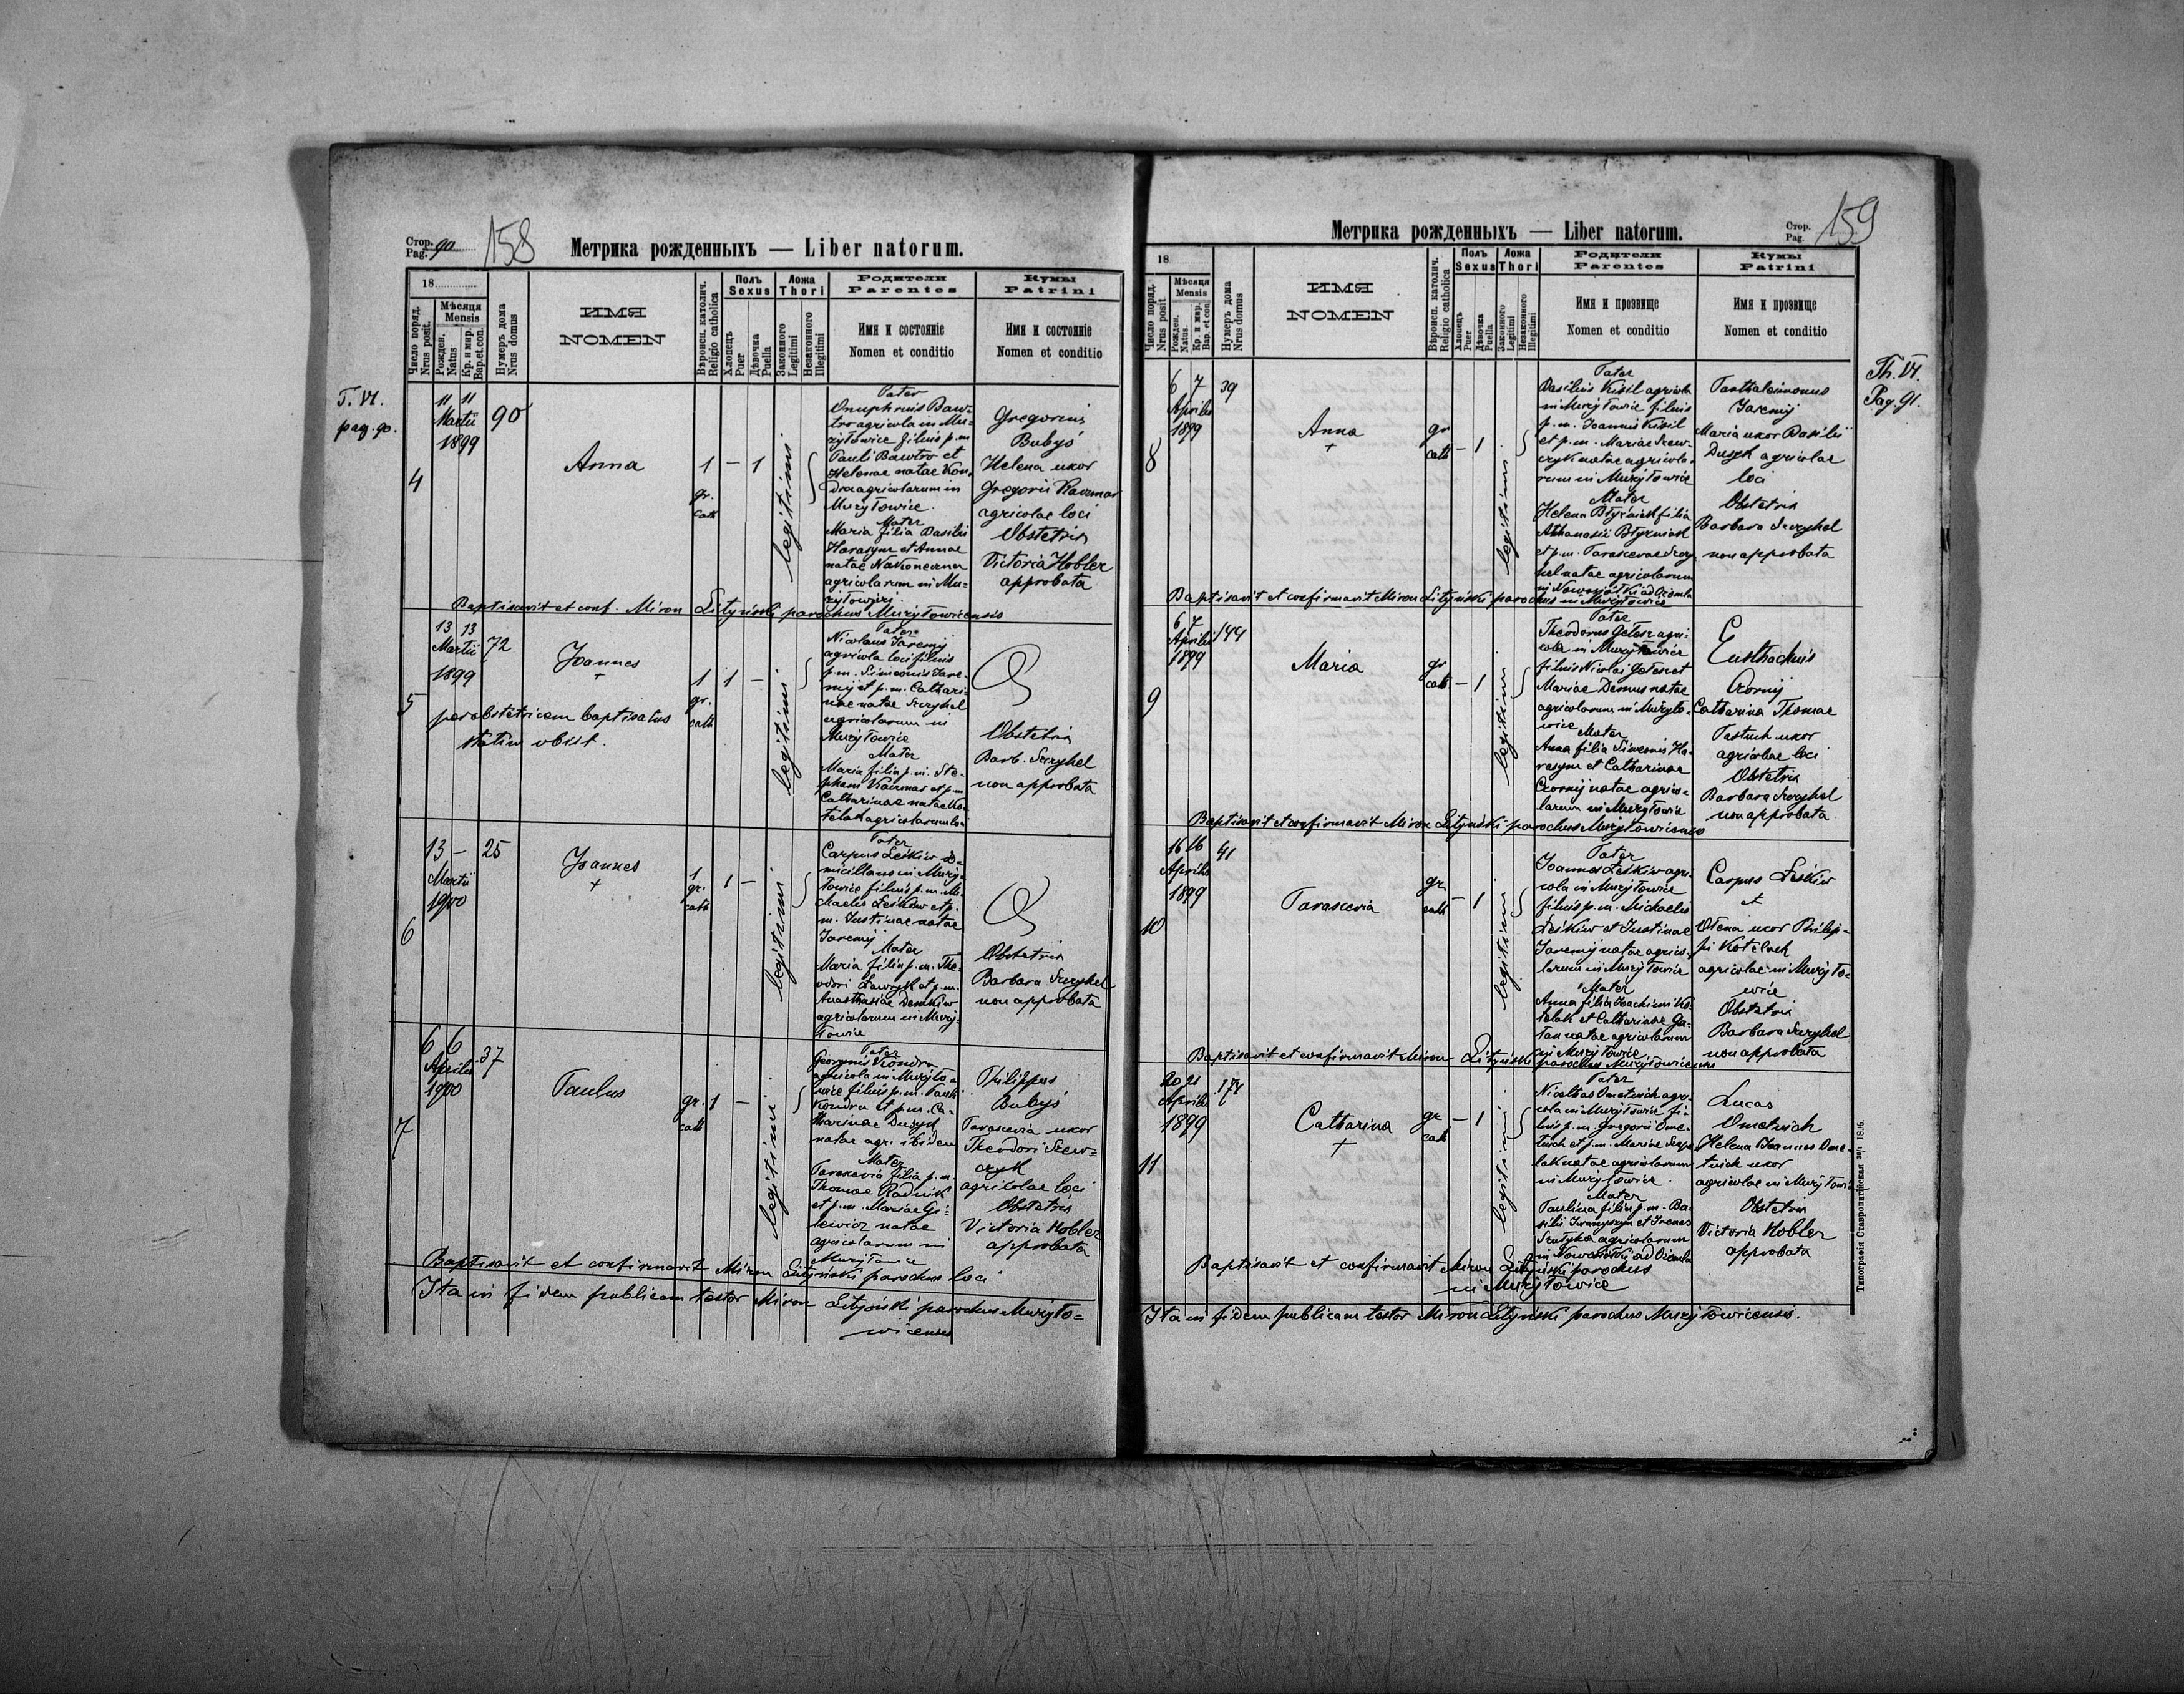 Стор.
Pag. 90
158
Метрика рожденныхъ — Liber natorum.
18
Число поряд.
Nrus posit.
Мѣсяця
Mensis
Рожден.
Natus
Кр. и мир.
Bap. et con.
Нумеръ дома
Nrus domus
ИМЯ
NOMEN
Вѣроисп. католич.
Religio catholica
Полъ
Sexus
Хлопецъ
Puer
Дѣвочка
Puella
Ложа
Thori
Законного
Legitimi
Незаконного
Illegitimi
Родители
Parentes
Имя и состоянiе
Nomen et conditio
Кумы
Patrini
Имя и состоянiе
Nomen et conditio
T. VI.
pag. 90.
4
11 11
Martii
1899
90
Anna
1 – 1
gr.
cath
legitimi
Pater
Onuphrius Baw-
tro agricola in Mu-
zyłowice filius p.m
Pauli Bawtro et
Helenae natae Kon-
dra agricolarum in
Muzyłowice.
Mater
Maria filia Basilii
Harasym et Annae
natae Nakoneczna
agricolarum in Mu-
zyłowice.
Gregorius
Bubys
Helena uxor
Gregorii Kaczmar
agricolae loci
Obstetrix
Victoria Hobler
approbata
Baptisavit et conf. Miron Lityński parochus Muzyłowicensis
5
13 13
Martii
1899
72
Joannes
+
per obstetricem baptisatus
statim obiit.
1 1 –
gr.
cath
legitimi
Pater
Nicolaus Jaremij
agricola loci filius
p.m. Simeonis Jare-
mij et p.m. Cathari-
nae natae Suzyhel
agricolarum in
Muzyłowice
Mater
Maria filia p.m. Ste-
phani Kaczmar et p.m
Catharinae natae Ko-
telak agricolarum loci
Obstetrix
Barb. Suzyhel
non approbata
6
13 –
Martii
1900
25
Joannes
+
1 1 –
gr.
cath
legitimi
Pater
Carpus Leśkiw do-
micillans in Muzy-
łowice filius p.m. Mi-
chaelis Leśkiw et p.
m. Justinae natae
Jaremij
Mater
Maria filia p.m. The-
odori Ławryk et p.m.
Anasthasiae Demkiw
agricolarum in Muzy-
łowice
Obstetrix
Barbara Suzyhel
non approbata
7
6 6
Aprilis
1900
37
Paulus
gr. 1 –
cath
legitimi
Pater
Georgius Kondra
agricola in Muzyło-
wice filius p.m. Pauli
Kondra et p.m. Ca-
tharinae Dusyk
natae agr. ibidem
Mater
Parascevia filia p.m.
Thomae Rudnik
et p.m. Mariae Gi-
lewicz natae
agricolarum in
Muzyłowice
Philippus
Bubys
Parascevia uxor
Theodori Szew-
czyk
agricolae loci
Obstetrix
Victoria Hobler
approbata
Baptisavit et confirmavit Miron Lityński parochus loci
Ita in fidem publicam testor Miron Lityński parochus Muzyło-
wicensis
Метрика рожденныхъ — Liber natorum.
Стор.
Pag.
159
18
Число поряд.
Nrus posit
Мѣсяця
Mensis
Рожден.
Natus.
Кр. и мир.
Bap. et con
Нумеръ дома
Nrus domus
ИМЯ
NOMEN
Вѣроисп. католич.
Religio catholica
Полъ
Sexus
Хлопецъ
Puer
Дѣвочка
Puella
Ложа
Thori
Законного
Legitimi
Незаконного
Illegitimi
Родители
Parentes
Имя и прозвище
Nomen et conditio
Кумы
Patrini
Имя и прозвище
Nomen et conditio
Th. VI.
Pag. 91.
8
6 7
Aprilis
1899
39
Anna
+
gr
cath – 1
legitimi
Pater
Basilius Kisil agricola
in Muzyłowice filius
p.m. Joannis Kisil
et p.m. Mariae Szew-
czyk natae agricola-
rum in Muzyłowice
Mater
Helena Błyźniak filia
Athanasii Błyźniak
et p.m. Parasceviae Suzy-
hel natae agricolarum
Panthaleimonus
Jaremij
Maria uxor Basilii
Dusyk agricolae
loci
Obstetrix
Barbara Suzyhel
non approbata
Baptisavit et confirmavit Miron Lityński parochus in Muzyłowice
9
6 7
Aprilis
1899
144
Maria
gr
cath – 1
legitimi
Pater
Theodorus Gełosz agri-
cola in Muzyłowice
filius Nicolai Gełosz et
Mariae Demus natae
agricolarum in Muzyło-
wice
Mater
Anna filia Simeonis Ha-
rasym et Catharinae
Czornij natae agrico-
larum in Muzyłowice
Eusthachius
Czornij
Catharina Thomae
Pastuch uxor
agricolae loci
Obstetrix
Barbara Suzyhel
non approbata
Baptisavit et confirmavit Miron Lityński parochus Muzyłowicensis
10
16 16
Aprilis
1899
41
Parascevia
gr
cath – 1
legitimi
Pater
Joannes Leśkiw agri-
cola in Muzyłowice
filius p.m. Michaelis
Leśkiw et Justinae
Jaremij natae agrico-
larum in Muzyłowice
Mater
Anna filia Joachimi Ko-
telak et Catharinae Ga-
tan natae agricolarum
in Muzyłowice
Carpus Leśkiw
et
Olena uxor Philip-
pi Kotelnek
agricolae in Muzyło-
wice
Obstetrix
Barbara Suzyhel
non approbata
Baptisavit et confirmavit Miron Lityński parochus Muzyłowicensis
11
20 21
Aprilis
1899
174
Catharina
+
gr – 1
cath
legitimi
Pater
Nicolaus Ometiuch agri-
cola in Muzyłowice fi-
lius p.m. Gregorii Ome-
tiuch et p.m. Mariae
natae agricolarum
in Muzyłowice.
Mater
Paulina filia p.m. Ba-
silii et Irenes
agricolarum
Lucas
Ometiuch
Helena Joannes Ome-
tiuch uxor
agricolae in Muzyłowice
Obstetrix
Victoria Hobler
approbata
Baptisavit et confirmavit Miron Lityński parochus
in Muzyłowice
Ita in fidem publicam testor Miron Lityński parochus Muzyłowicensis.
Типографія Ставропигійская